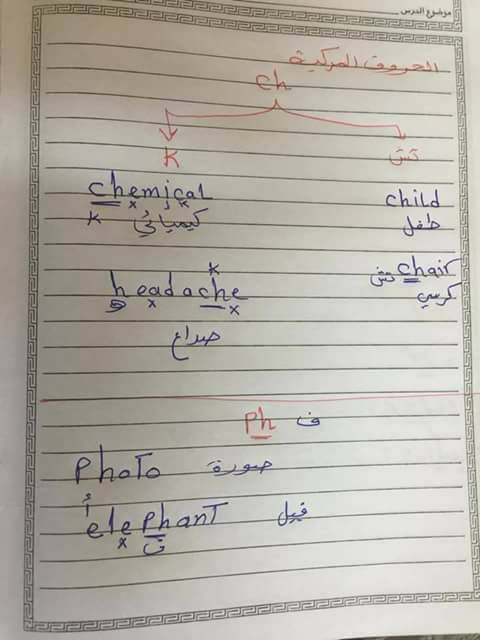 موضوع الدرس
الحروف المركبة
ch
k تش
chemical child
x x x
k كيميائي طفل
k
chair تش
headache كرسي
ه x x
صداع
ph ف
Photo صورة
أ
elephant فيل
x ف